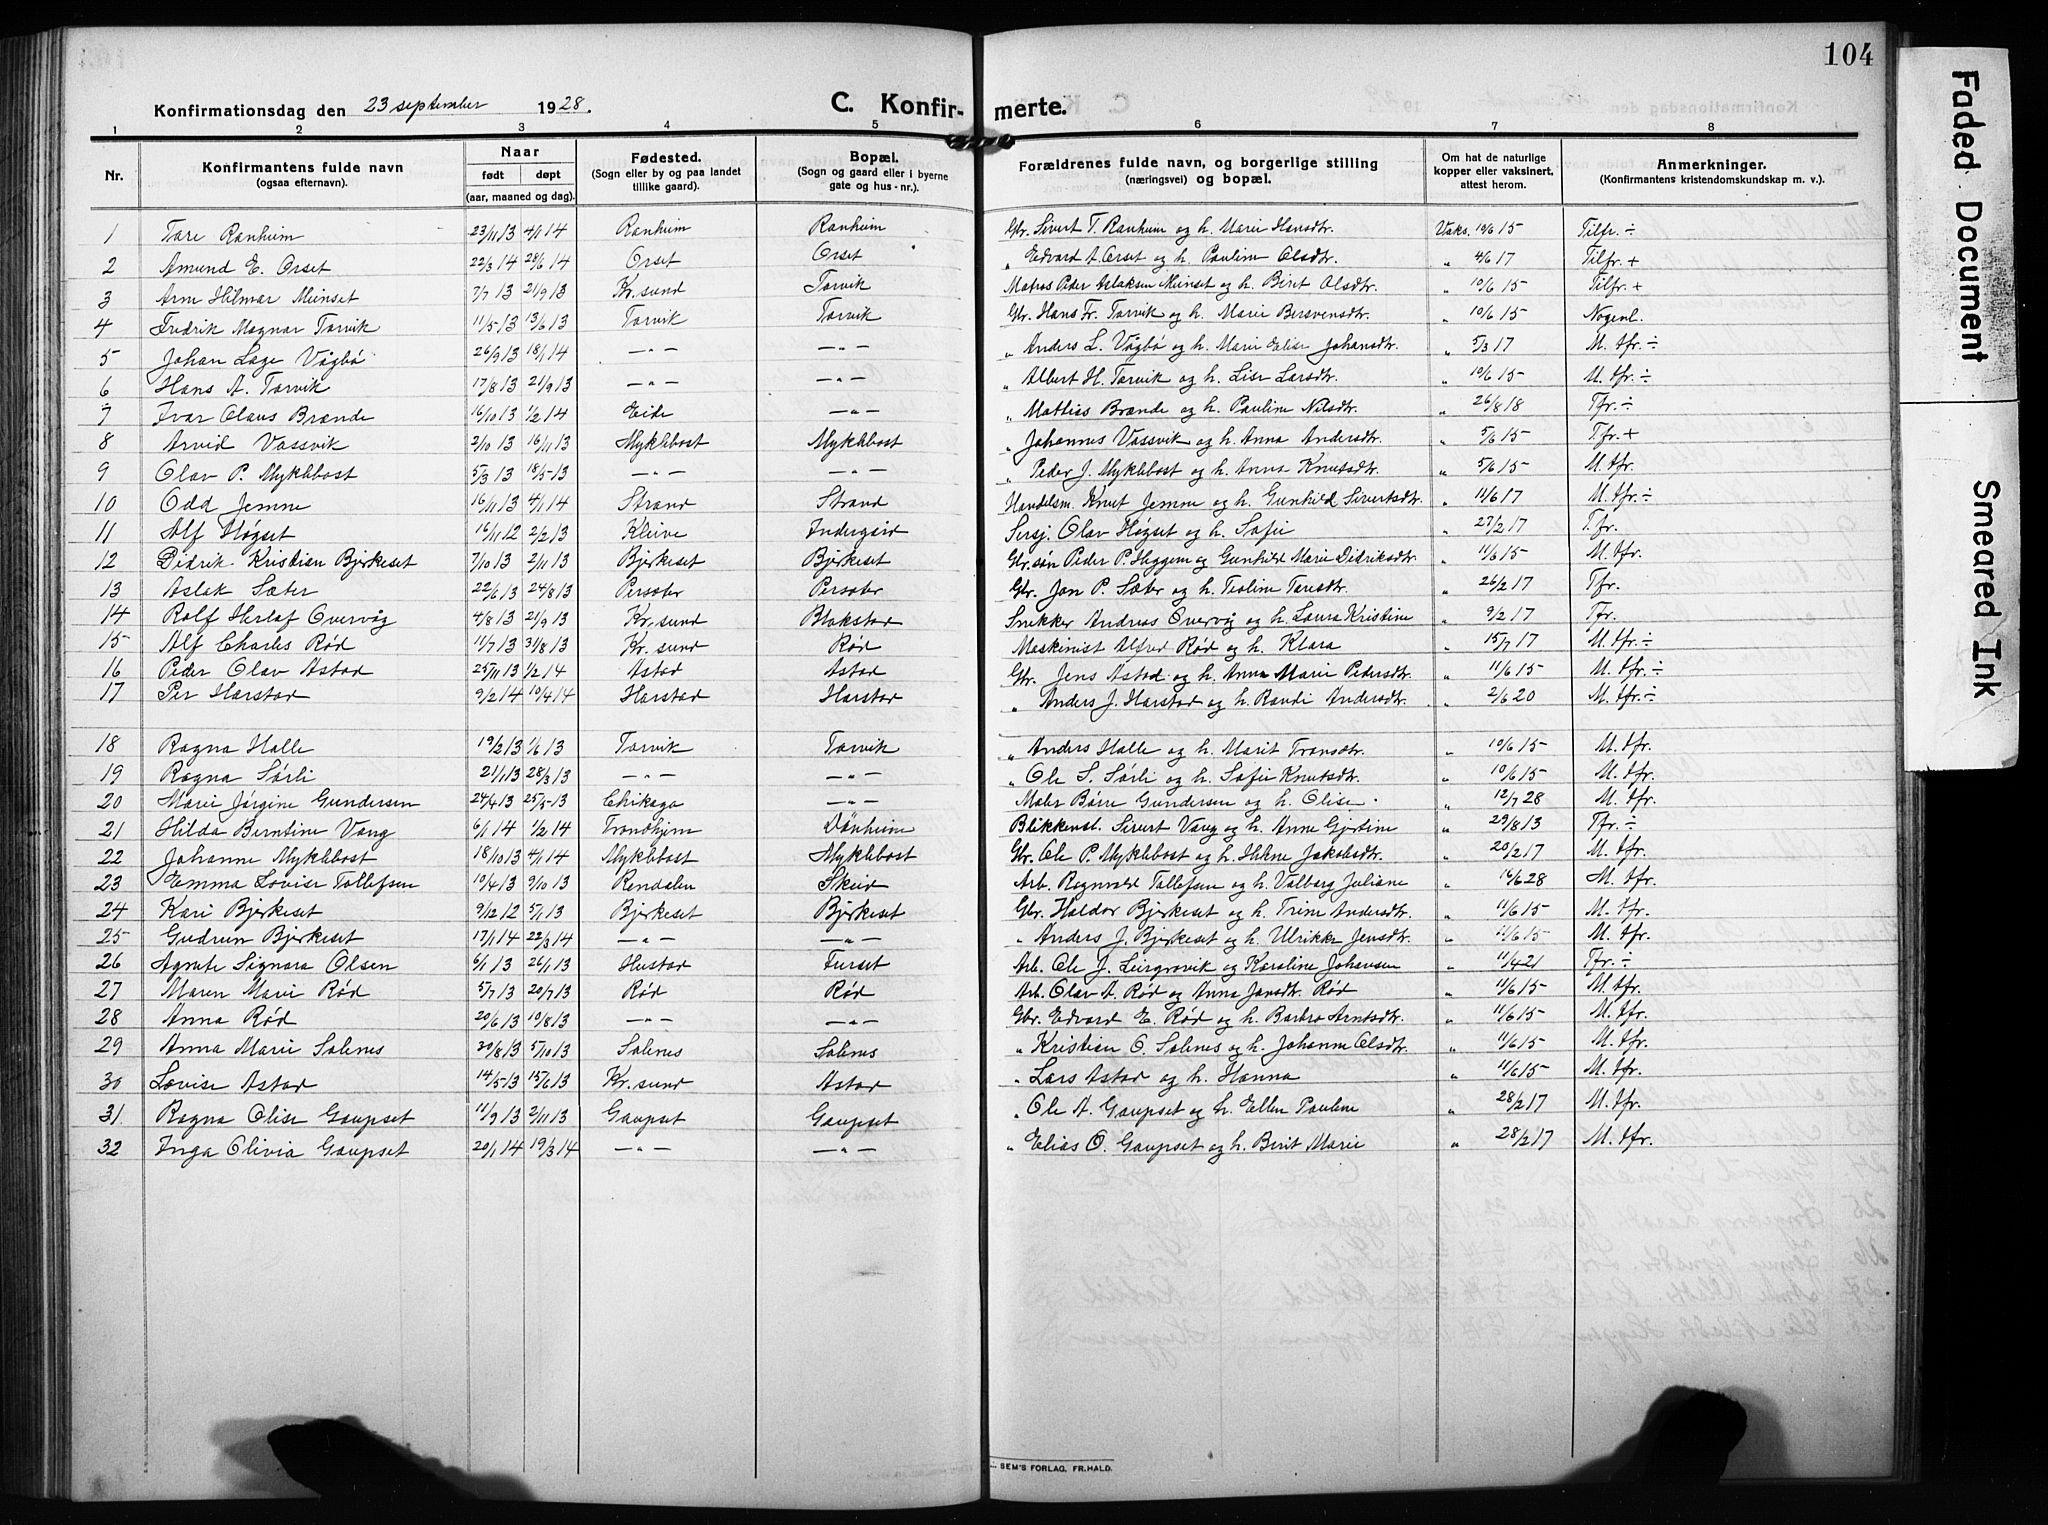 104
Konfirmationsdag den 23 september 1928.
C. Konfirmerte.
1 2 3 4 5 6 7 8
Nr. Konfirmantens fulde navn (ogsaa efternavn). Naar født døpt (aar, maaned og dag). Fødested. (Sogn eller by og paa landet tillike gaard). Bopæl. (Sogn og gaard eller i byerne gate og hus-nr.). Forældrenes fulde navn, og borgerlige stilling (næringsvei) og bopæl. Om hat de naturlige kopper eller vaksinert, attest herom. Anmerkninger. (Konfirmantens kristendomskundskap m. v.).
1 Tore Ranheim 23/11 13 4/1 14 Ranheim Ranheim Gbr. Sivert T. Ranheim og h. Marie Hansdtr. Vaks. 10/6 15 Tilfr. ÷
2 Amund E. Orset 22/3 14 28/6 14 Orset Orset " Edvard A. Orset og h. Pauline Olsdtr. " 4/6 17 Tilfr. +
3 Arne Hilmar Meinset 7/7 13 21/9 13 Kr.sund Torvik Matros Peder Aslaksen Meinset og h. Berit Olsdtr. " 10/6 15 Tilfr. +
4 Fredrik Magnar Torvik 11/5 13 13/6 13 Torvik Torvik Gbr. Hans Fr. Torvik og h. Marie Bersvensdtr. " 10/6 15 Nogenl.
5 Johan Lage Vågbø 26/9 13 18/1 14 — " — — " — " Anders L. Vågbø og h. Marie Elise Johansdtr. " 5/3 17 M. tfr. ÷
6 Hans A. Torvik 17/8 13 21/9 13 — " — — " — " Albert H. Torvik og h. Lise Larsdtr. " 10/6 15 M. tfr. ÷
7 Ivar Olaus Brande 16/10 13 1/2 14 Eide — " — " Mathias Brande og h. Pauline Nilsdtr. " 26/8 18 Tfr. ÷
8 Arvid Vassvik 2/10 13 16/11 13 Myklebost Myklebost " Johannes Vassvik og h. Anna Andersdtr. " 5/6 15 Tfr. +
9 Olav P. Myklebost 5/3 13 18/5 13 — " — — " — " Peder J. Myklebost og h. Anna Knutsdtr. " 5/6 15 M. tfr.
10 Odd Jemne 16/11 13 4/1 14 Strand Strand Handelsm. Knut Jemne og h. Gunhild Sivertsdtr. " 11/6 17 M. tfr. ÷
11 Alf Høgset 16/11 12 2/2 13 Kleive Indergård Sersj. Olav Høgset og h. Sofie " 27/2 17 Tfr.
12 Didrik Kristian Bjerkeset 7/10 13 2/11 13 Bjerkeset Bjerkeset Gbr.søn Peder P. Heggem og Gunhild Marie Didriksdtr. " 11/6 15 M. tfr.
13 Aslak Sæter 22/6 13 24/8 13 Persæter Persæter Gbr. Jon P. Sæter og h. Teoline Toresdtr. " 26/2 17 Tfr.
14 Rolf Herlof Overvåg 4/8 13 21/9 13 Kr.sund Blakstad Snekker Andreas Overvåg og h. Laura Kristine " 9/2 17 Tfr.
15 Alf Charles Rød 11/7 13 31/8 13 Kr.sund Rød Maskinist Alfred Rød og h. Klara " 15/7 17 M. tfr. ÷
16 Peder Olav Astad 25/11 13 1/2 14 Astad Astad Gbr. Jens Astad og h. Anne Marie Pedersdtr. " 11/6 15 M. tfr. ÷
17 Per Harstad 9/2 14 10/4 14 Harstad Harstad " Anders J. Harstad og h. Randi Andersdtr. " 2/6 20 M. tfr. ÷
18 Ragna Halle 19/2 13 1/6 13 Torvik Torvik " Anders Halle og h. Marit Tronsdtr. " 10/6 15 M. tfr.
19 Ragna Sørli 21/1 13 28/3 13 — " — — " — " Ole S. Sørli og h. Sofie Knutsdtr. " 10/6 15 M. tfr.
20 Marie Jørgine Gundersen 24/4 13 25/5 13 Chikago — " — Maler Børre Gundersen og h. Olise. " 12/7 28 M. tfr.
21 Hilda Berntine Vang 6/1 14 1/2 14 Trondhjem Dønheim Blikkensl. Sivert Vang og h. Anne Gjertine " 29/8 13 Tfr. ÷
22 Johanne Myklebost 18/10 13 4/1 14 Myklebost Myklebost Gbr. Ole P. Myklebost og h. Helene Jakobsdtr. " 20/2 17 M. tfr.
23 Emma Lovise Tollefsen 10/4 13 9/10 13 Rendalen Skeid Arb. Ragnvald Tollefsen og h. Valborg Juliane " 16/6 28 M. tfr.
24 Kari Bjerkeset 9/12 12 5/1 13 Bjerkeset Bjerkeset Gbr. Haldor Bjerkeset og h. Trine Andersdtr. " 11/6 15 M. tfr.
25 Gudrun Bjerkeset 17/1 14 22/3 14 — " — — " — " Anders J. Bjerkeset og h. Ulrikke Jensdtr. " 11/6 15 M. tfr.
26 Agnete Signora Olsen 6/1 13 26/1 13 Hustad Furset Arb. Ole J. Leirgrovik og Karoline Johansen " 11/4 21 Tfr. ÷
27 Maren Marie Rød 5/7 13 20/7 13 Rød Rød Arb. Olav A. Rød og Anna Jansdtr. Rød " 11/6 15 M. tfr.
28 Anna Rød 20/6 13 10/8 13 — " — — " — Gbr. Edvard E. Rød og h. Barbro Arntsdtr. " 11/6 15 M. tfr.
29 Anna Marie Solenes 20/8 13 5/10 13 Solenes Solenes " Kristian O. Solenes og h. Johanne Olsdtr. " 11/6 15 M. tfr.
30 Lovise Astad 14/5 13 15/6 13 Kr.sund Astad " Lars Astad og h. Hanna " 11/6 15 M. tfr.
31 Ragna Olise Gaupset 11/9 13 2/11 13 Gaupset Gaupset " Ole A. Gaupset og h. Ellen Pauline " 28/2 17 M. tfr.
32 Inga Olivia Gaupset 20/1 14 19/3 14 — " — — " — " Elias O. Gaupset og h. Berit Marie " 28/2 17 M. tfr.
SEM'S FORLAG, FR. HALD.
Faded Document
Smeared Ink